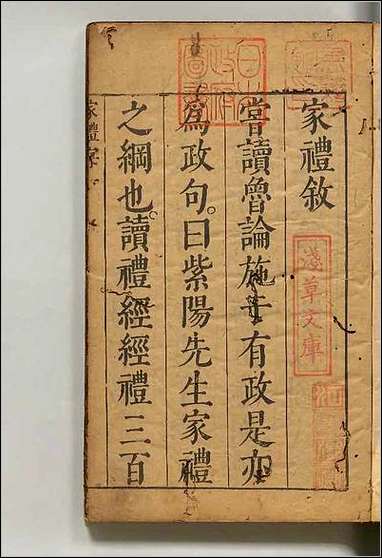 家禮敘
嘗讀魯論施于有政是亦
為政句。曰紫陽先生家禮
之綱也。讀禮經經禮三百
淺草文庫
日本
政府
圖書
家禮序